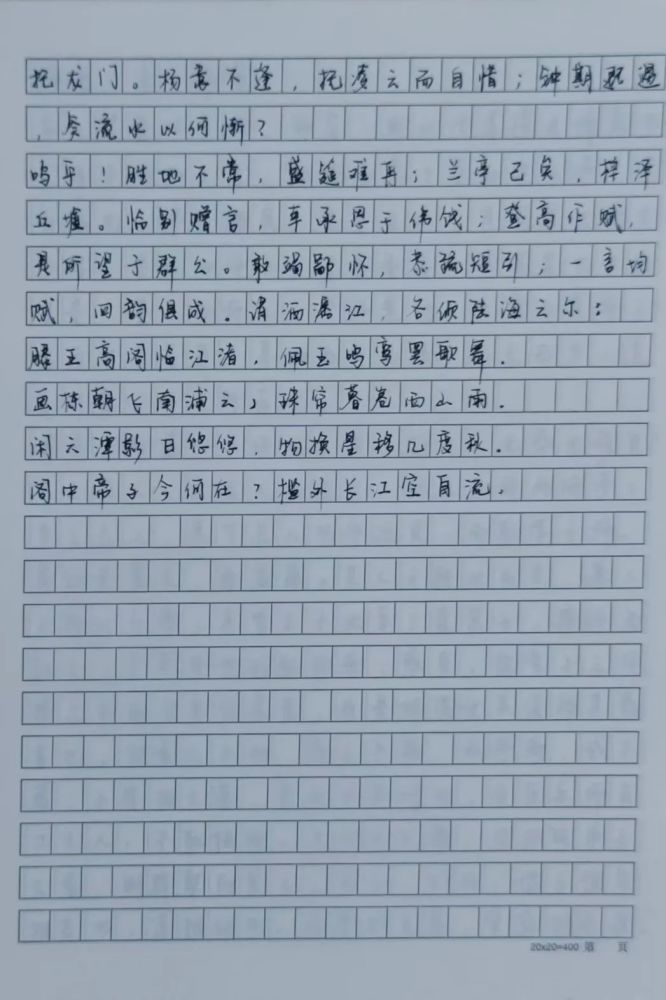 托龙门。杨意不逢，抚凌云而自惜；钟期既遇
，奏流水以何惭？
呜乎！胜地不常，盛筵难再；兰亭已矣，梓泽
丘墟。临别赠言，幸承恩于伟饯；登高作赋，
是所望于群公。敢竭鄙怀，恭疏短引；一言均
赋，四韵俱成。请洒潘江，各倾陆海云尔：
滕王高阁临江渚，佩玉鸣鸾罢歌舞．
画栋朝飞南浦云，珠帘暮卷西山雨．
闲云潭影日悠悠，物换星移几度秋．
阁中帝子今何在？槛外长江空自流．
20x20=400 第 页